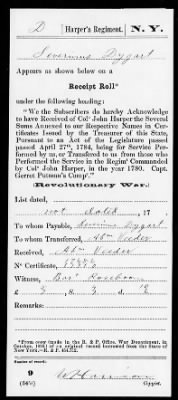 D Harper's Regiment. N. Y.
Severinus Dygart
Appears as shown below on a
Receipt Roll*
under the following heading:
"We the Subscribers do hereby Acknowledge
to have Received of Colº John Harper the Several
Sums Annexed to our Respective Names in Cer-
tificates Issued by the Treasurer of this State,
Pursuant to an Act of the Legislature passed
passed April 27th, 1784, being for Service Per-
formed by us, or Transferred to us from those who
Performed the Service in the Regimt Commanded
by Colº John Harper, in the year 1780. Capt.
Garret Putman's Compy."
(Revolutionary War.)
List dated,
not dated, 17
To whom Payable, Severinus Dygart
To whom Transferred, Abm Veeder
Received, Abm Veeder
Nº Certificate,
Witness, Bart Roseboom
£ 3
Remarks:
*From copy (made in the R. & P. Office, War Department, in
October, 1891) of an original record borrowed from the State of
New York.—R. & P.
Number of record:
9
Copyist.